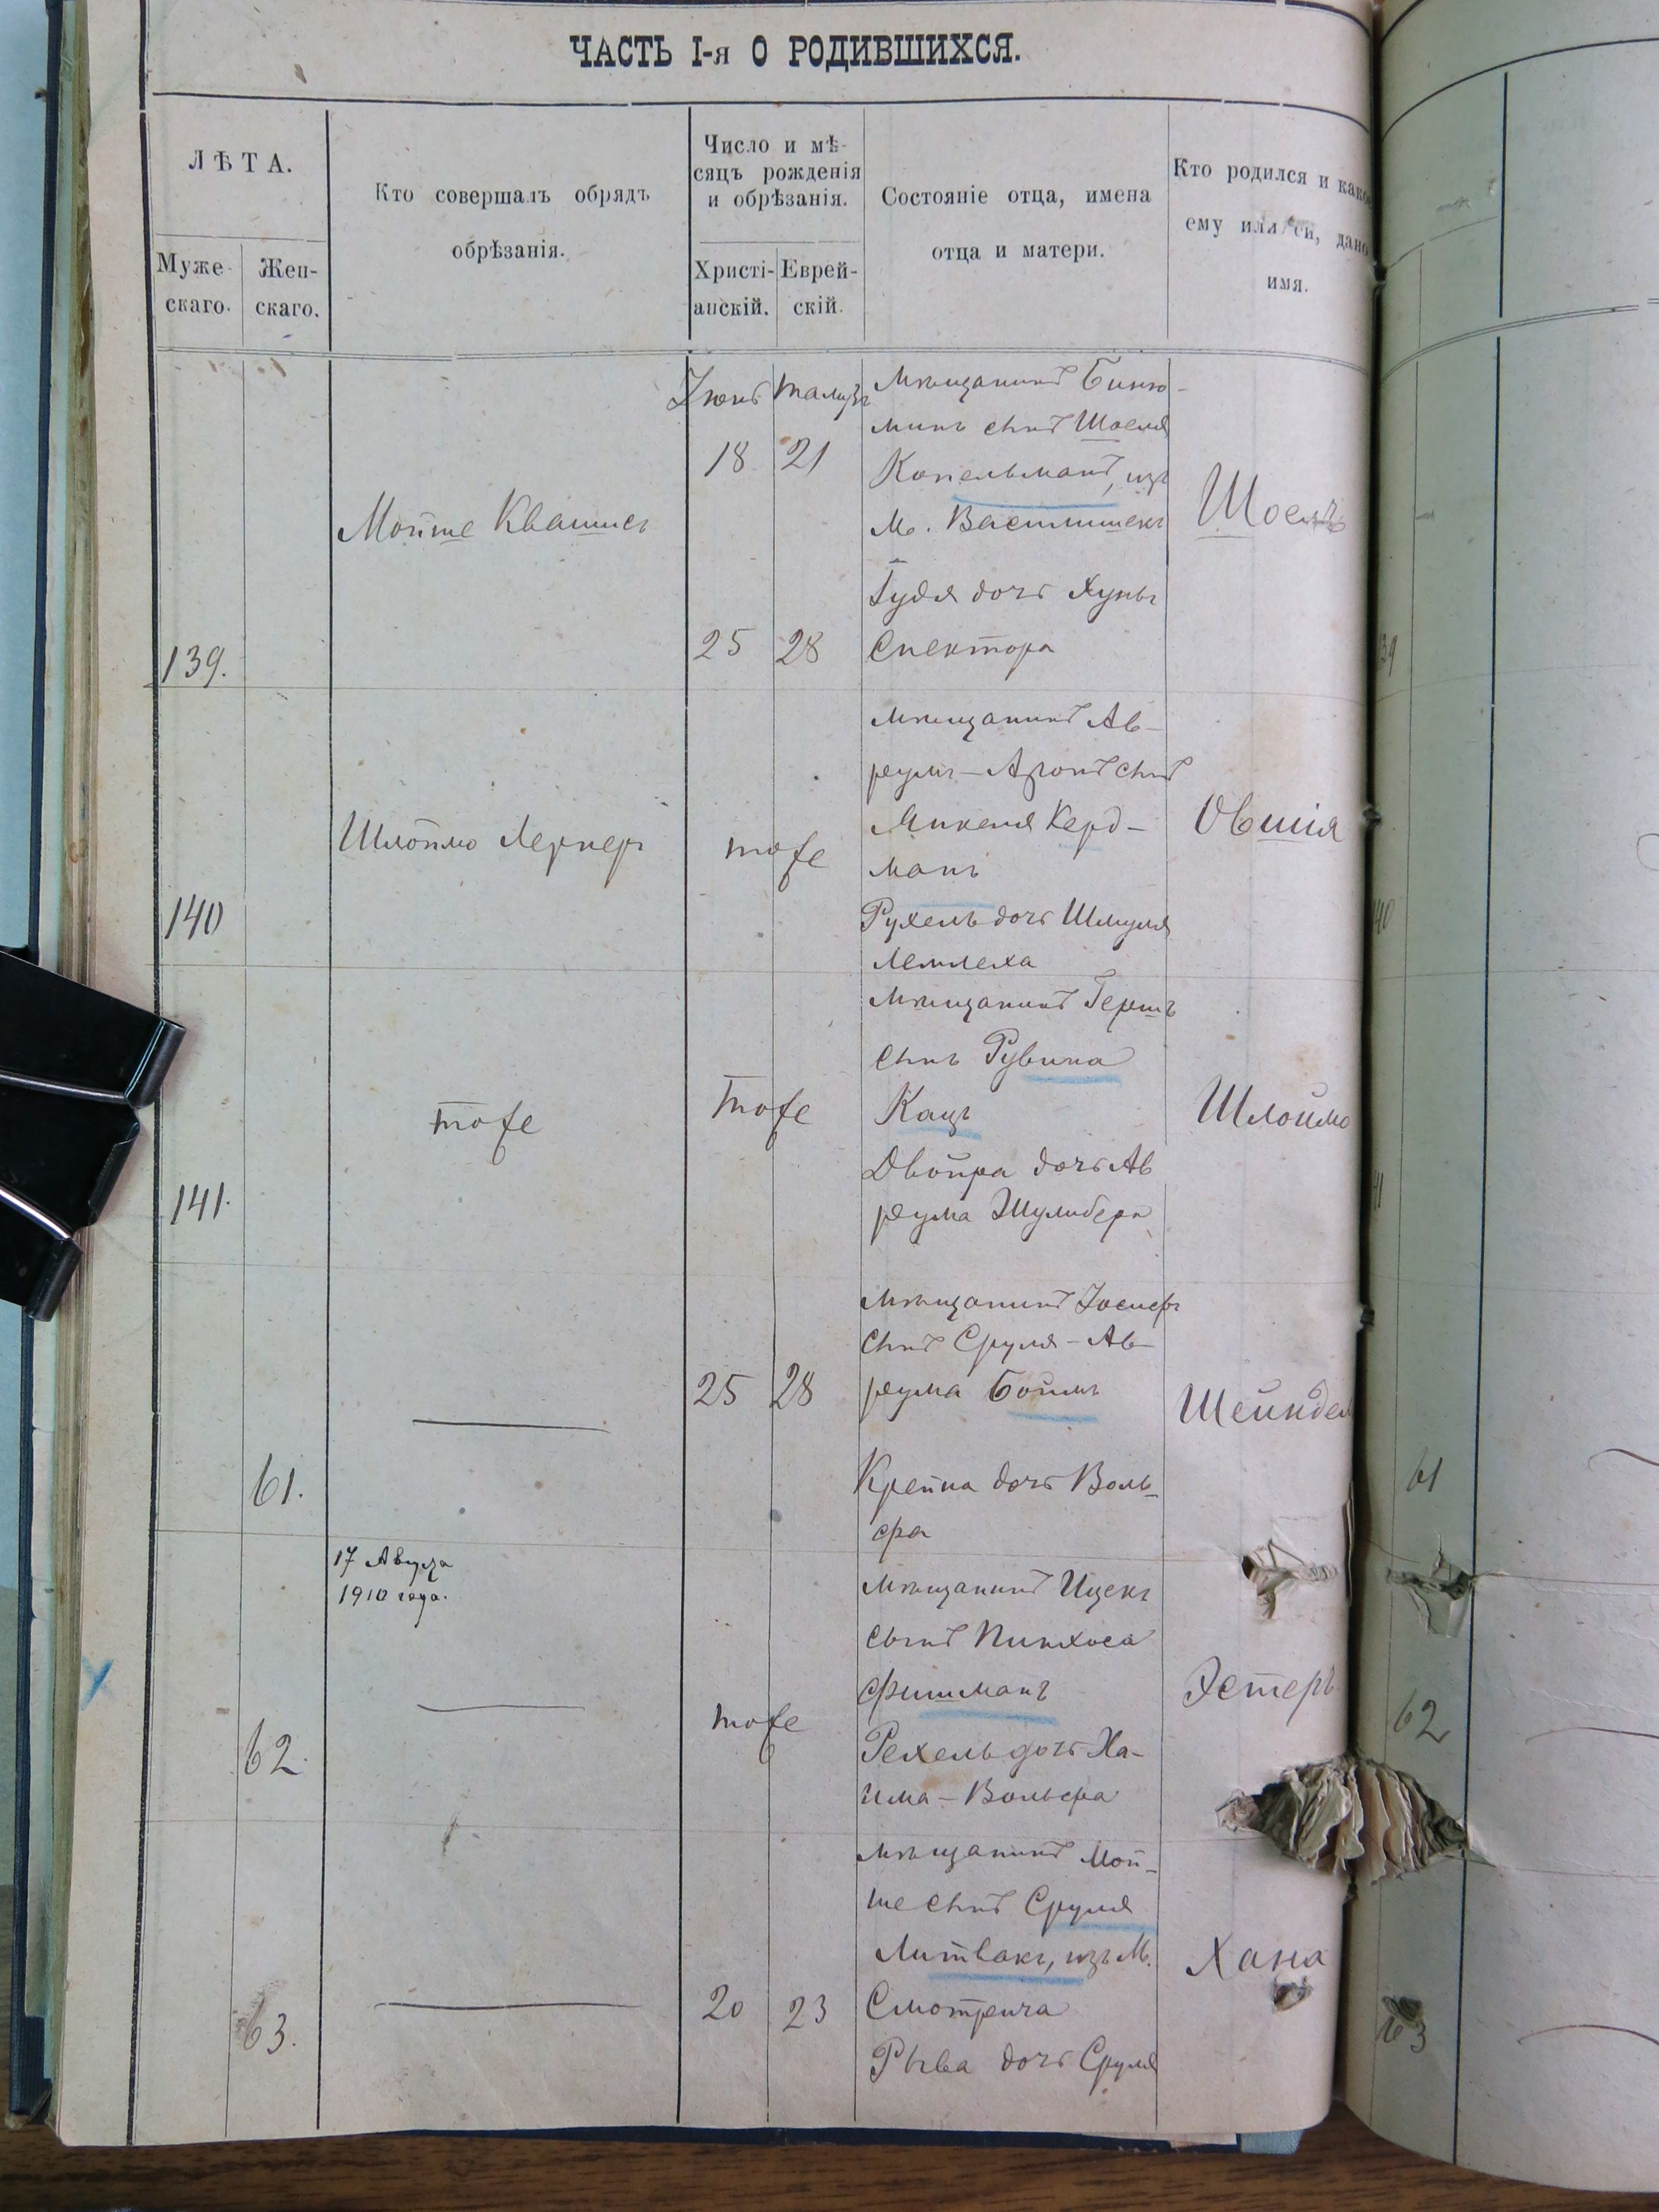 ЧАСТЬ I-я О РОДИВШИХСЯ.
ЛѢТА.
Муже-
скаго.
Жен-
скаго.
Кто совершалъ обрядъ
обрѣзанія.
Число и мѣ-
сяцъ рожденія
и обрѣзанія.
Христі-
анскій.
Еврей-
скій.
Состояніе отца, имена
отца и матери.
Кто родился и како
ему или ей, дано
имя.
139.
Мойше Квашисъ
Іюнь
Тамузъ
18 21
25 28
Мѣщанинъ Биню-
минъ сынъ Шоеля
Копельманъ, изъ
м. Васишшекъ
Гудя дочь Хуны
Спектора
Шоель
139
140
Шлоймо Лернеръ
тоже
Мѣщанинъ Ав-
румъ-Аронъ сынъ
Микеля Керд-
манъ
Рухель дочь Шмуля
Овшія
40
141.
тоже
тоже
Мѣщанинъ Гершъ
сынъ Рувина
Кацъ
Двойра дочь Ав
рума
Шлоймо
41
61.
25 28
Мѣщанинъ Іосифъ
сынъ Сруля-Ав-
рума Боймъ
Крейна дочь Воль-
фа
Шейндел
61
17 Августа
1910 года.
62.
тоже
Мѣщанинъ Ицекъ
сынъ Пинхоса
Фишманъ
Рехель дочь Ха-
има-Вольфа
Эстеръ
62
63.
20 23
Мѣщанинъ Мой-
ше сынъ Сруля
Литвакъ, изъ м.
Смотрича
Рыва дочь Сруля
Хана
63